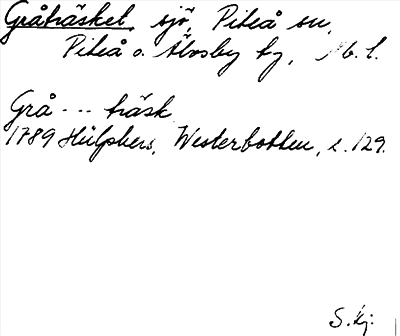 Gråträsket, sjö, Piteå sn,
Piteå o. Älvsby tg, Nb. l.
Grå --- träsk
1789 Hülphers, Westerbotten, s. 129.